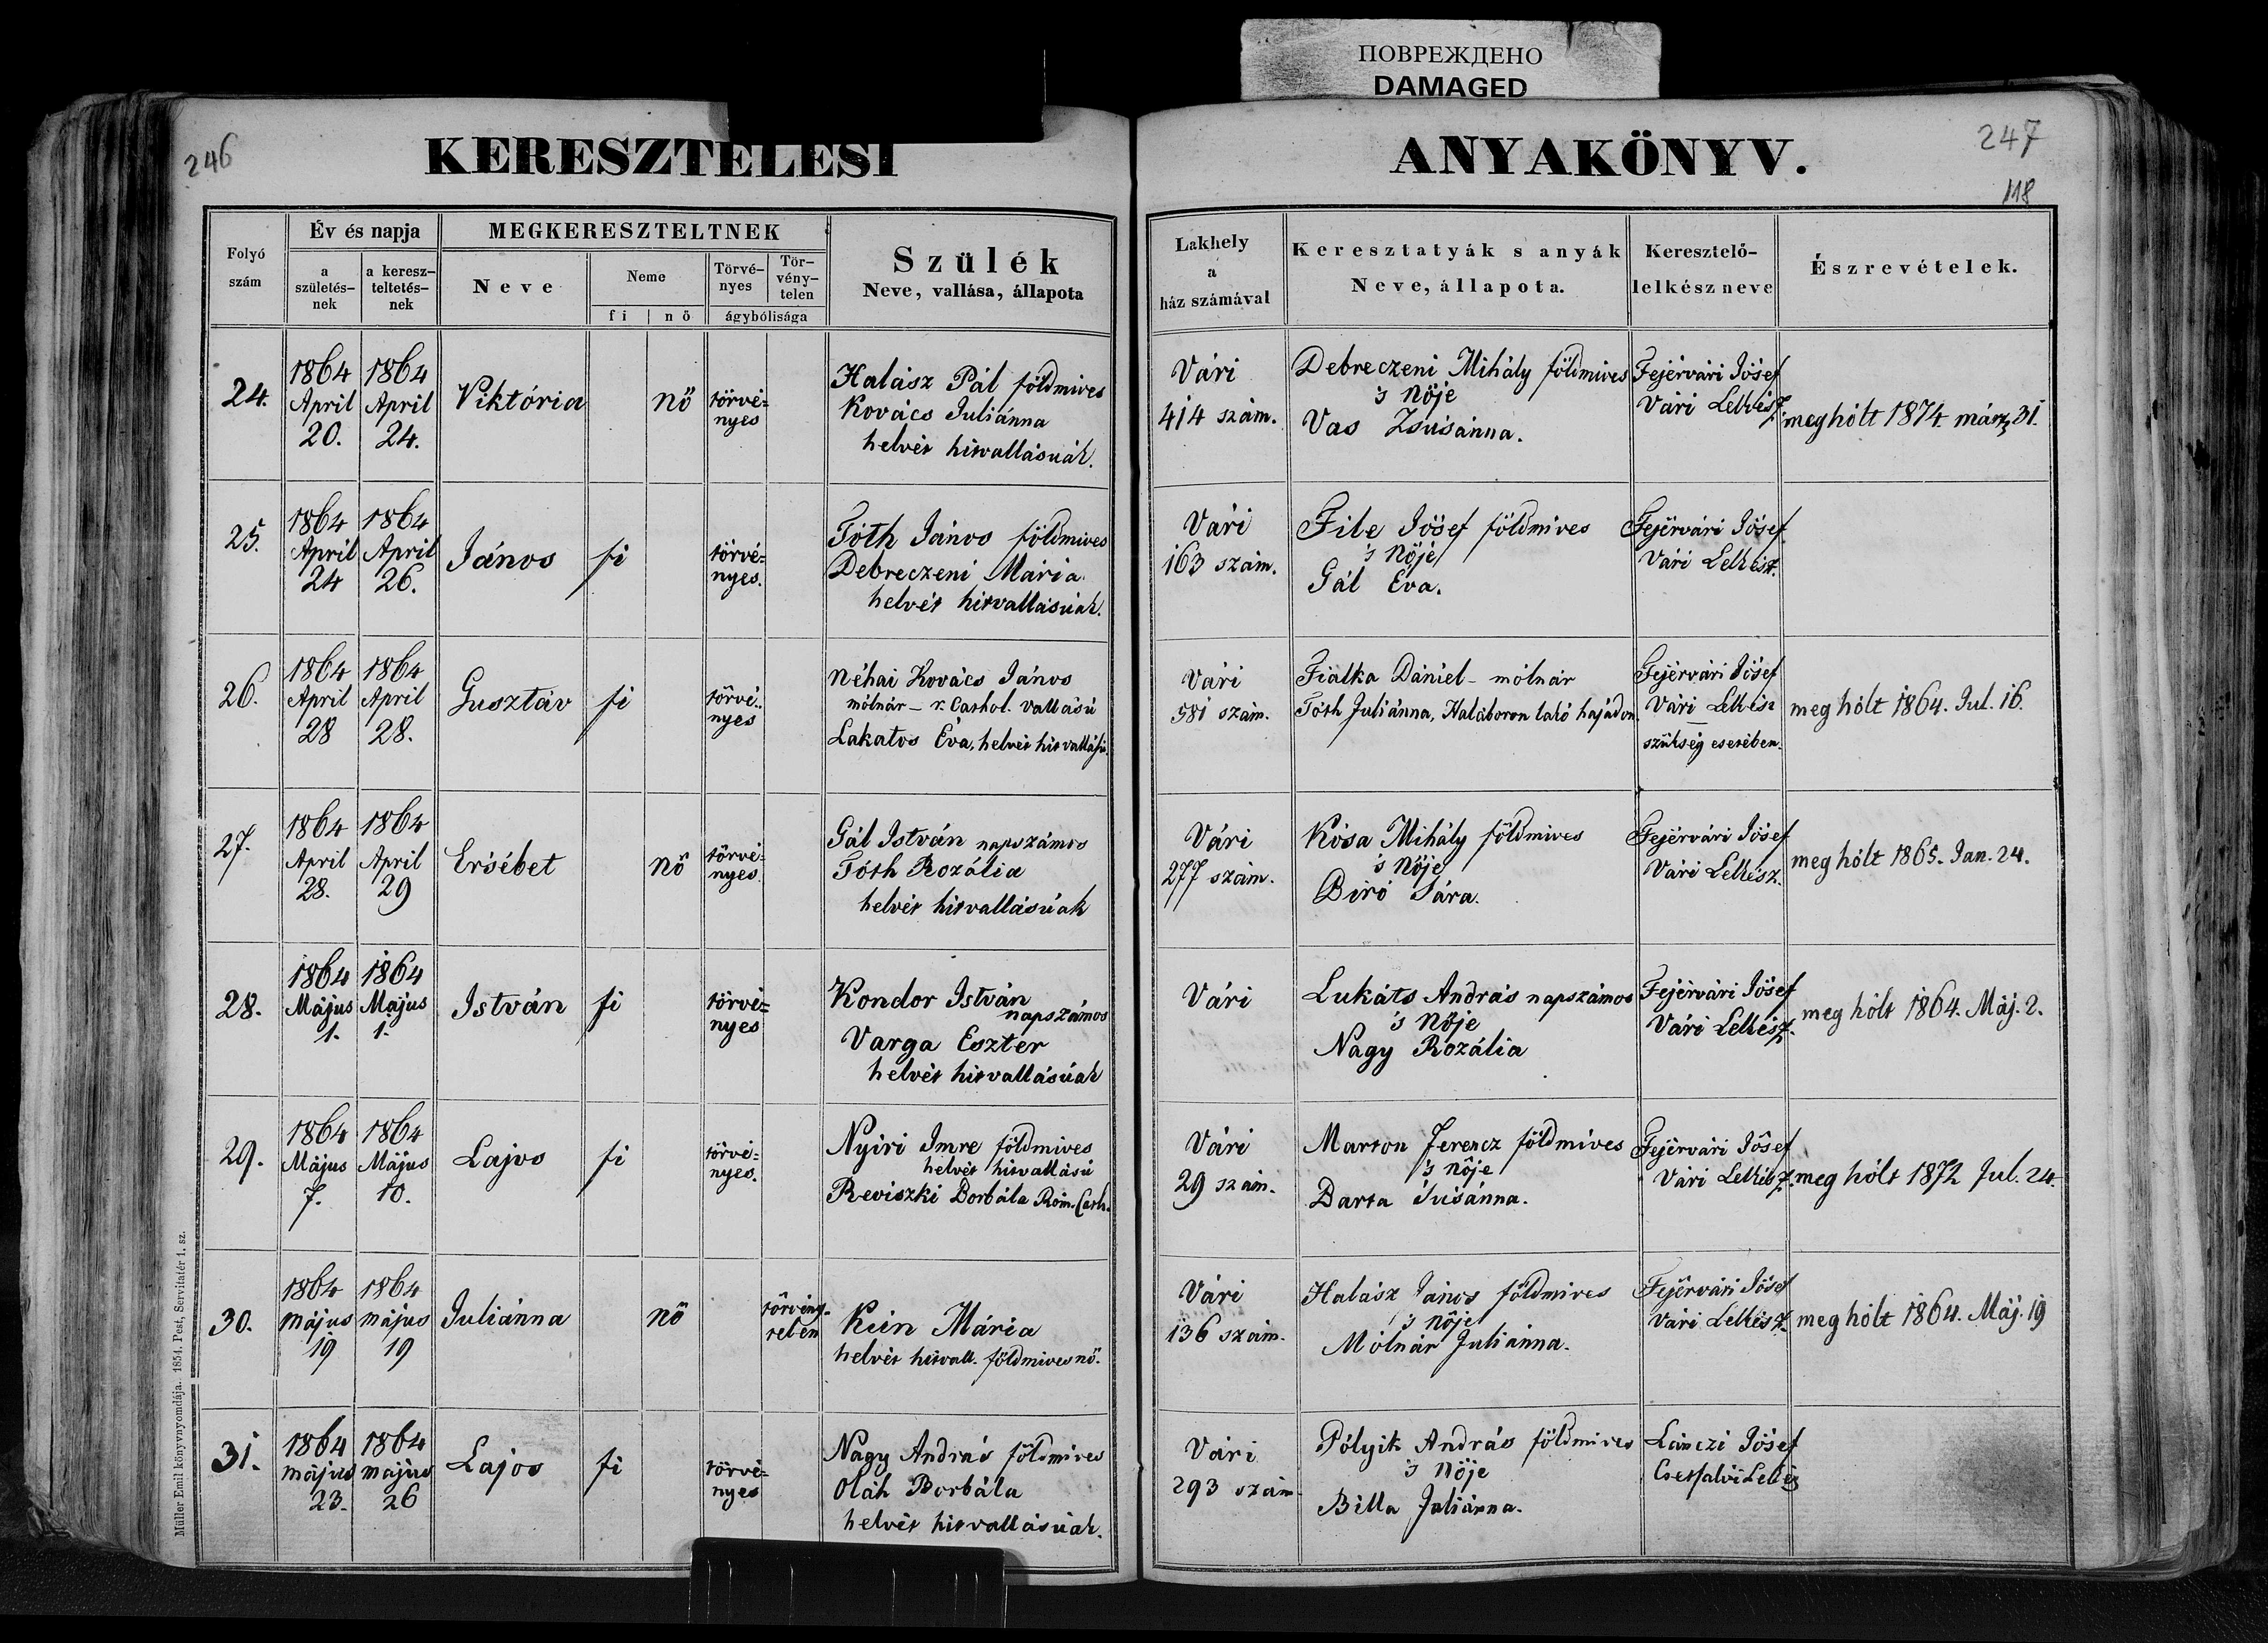 ПОВРЕЖДЕНО
DAMAGED
246
KERESZTELESI
ANYAKÖNYV.
247
118
Folyó
szám
Év és napja
a
születés-
nek
a keresz-
teltetés-
nek
MEGKERESZTELTNEK
Neve
Neme
fi | nő
Törvé-
nyes
Tör-
vény-
telen
ágybólisága
Szülék
Neve, vallása, állapota
Lakhely
a
ház számával
Keresztatyák s anyák
Neve, állapota.
Keresztelő-
lelkész neve
Észrevételek.
24.
1864
April
20.
1864
April
24.
Viktória
nő
törvé=
nyes
Halász Pál földmives
Kovács Juliánna
helvét hitvallásúak.
Vári
414 szám.
Debreczeni Mihály földmives
's nöje
Vas Zsúsánna.
Fejérvári Jósef
Vári Lelkész
meg hólt 1874. márz 31.
25.
1864
April
24
1864
April
26.
János
fi
törvé=
nyes.
Tóth János földmives
Debreczeni Mária
helvét hitvallásúak.
Vári
163 szám.
File Jósef földmives
's Nöje
Gál Éva.
Fejérvári Jósef
Vári Lelkész.
26.
1864
April
28
1864
April
28.
Gusztáv
fi
törvé=
nyes
Néhai Kovács János
mólnár – r. Cathol. vallású
Lakatos Éva, helvét hitvallású.
Vári
581 szám.
Fialka Dániel – mólnár
Tóth Juliánna, Haláboron lakó hajádon.
Fejérvári Jósef
Vári Lelkész
szükség esetében.
meg hólt 1864. Jul. 16.
27.
1864
April
28.
1864
April
29
Ersébet
nő
törvé=
nyes.
Gál István napszámos
Tóth Rozália
helvét hitvallásúak
Vári
277 szám.
Kósa Mihály földmives
's Nöje
Biró Sára.
Fejérvári Jósef
Vári Lelkész.
meg hólt 1865. Jan. 24.
28.
1864
Május
1.
1864
Május
1.
István
fi
törvé=
nyes
Kondor István
napszámos
Varga Eszter
helvét hitvallásúak
Vári
Lukáts András napszámos
's Nöje
Nagy Rozália
Fejérvári Jósef
Vári Lelkész.
meg hólt 1864. Máj. 2.
29.
1864
Május
7.
1864
Május
10.
Lajos
fi
törvé=
nyes.
Nyiri Imre földmives
helvét hitvallású
Reviszki Borbála Róm. Cath.
Vári
29 szám.
Marton Ferencz földmives
's nöje
Barta Susánna.
Fejérvári Jósef
Vári Lelkész.
meg hólt 1872 Jul. 24.
30.
1864
május
19
1864
május
19
Juliánna
nő
törvény-
telen
Kún Mária
helvét hitvall. földmivesnő.
Vári
136 szám.
Halász János földmives
's nöje
Mólnár Juliánna.
Fejérvári Jósef
Vári Lelkész.
meg hólt 1864. Máj. 19
31.
1864
május
23.
1864
május
26
Lajos
fi
törvé=
nyes
Nagy András földmives
Oláh Borbála
helvét hitvallásúak.
Vári
293 szám
Pólyik András földmives
's Nöje
Billa Juliánna.
Lánczi Jósef
Csetfalvi Lelkész
Müller Emil könyvnyomdája. 1854. Pest, Servitatér 1. sz.